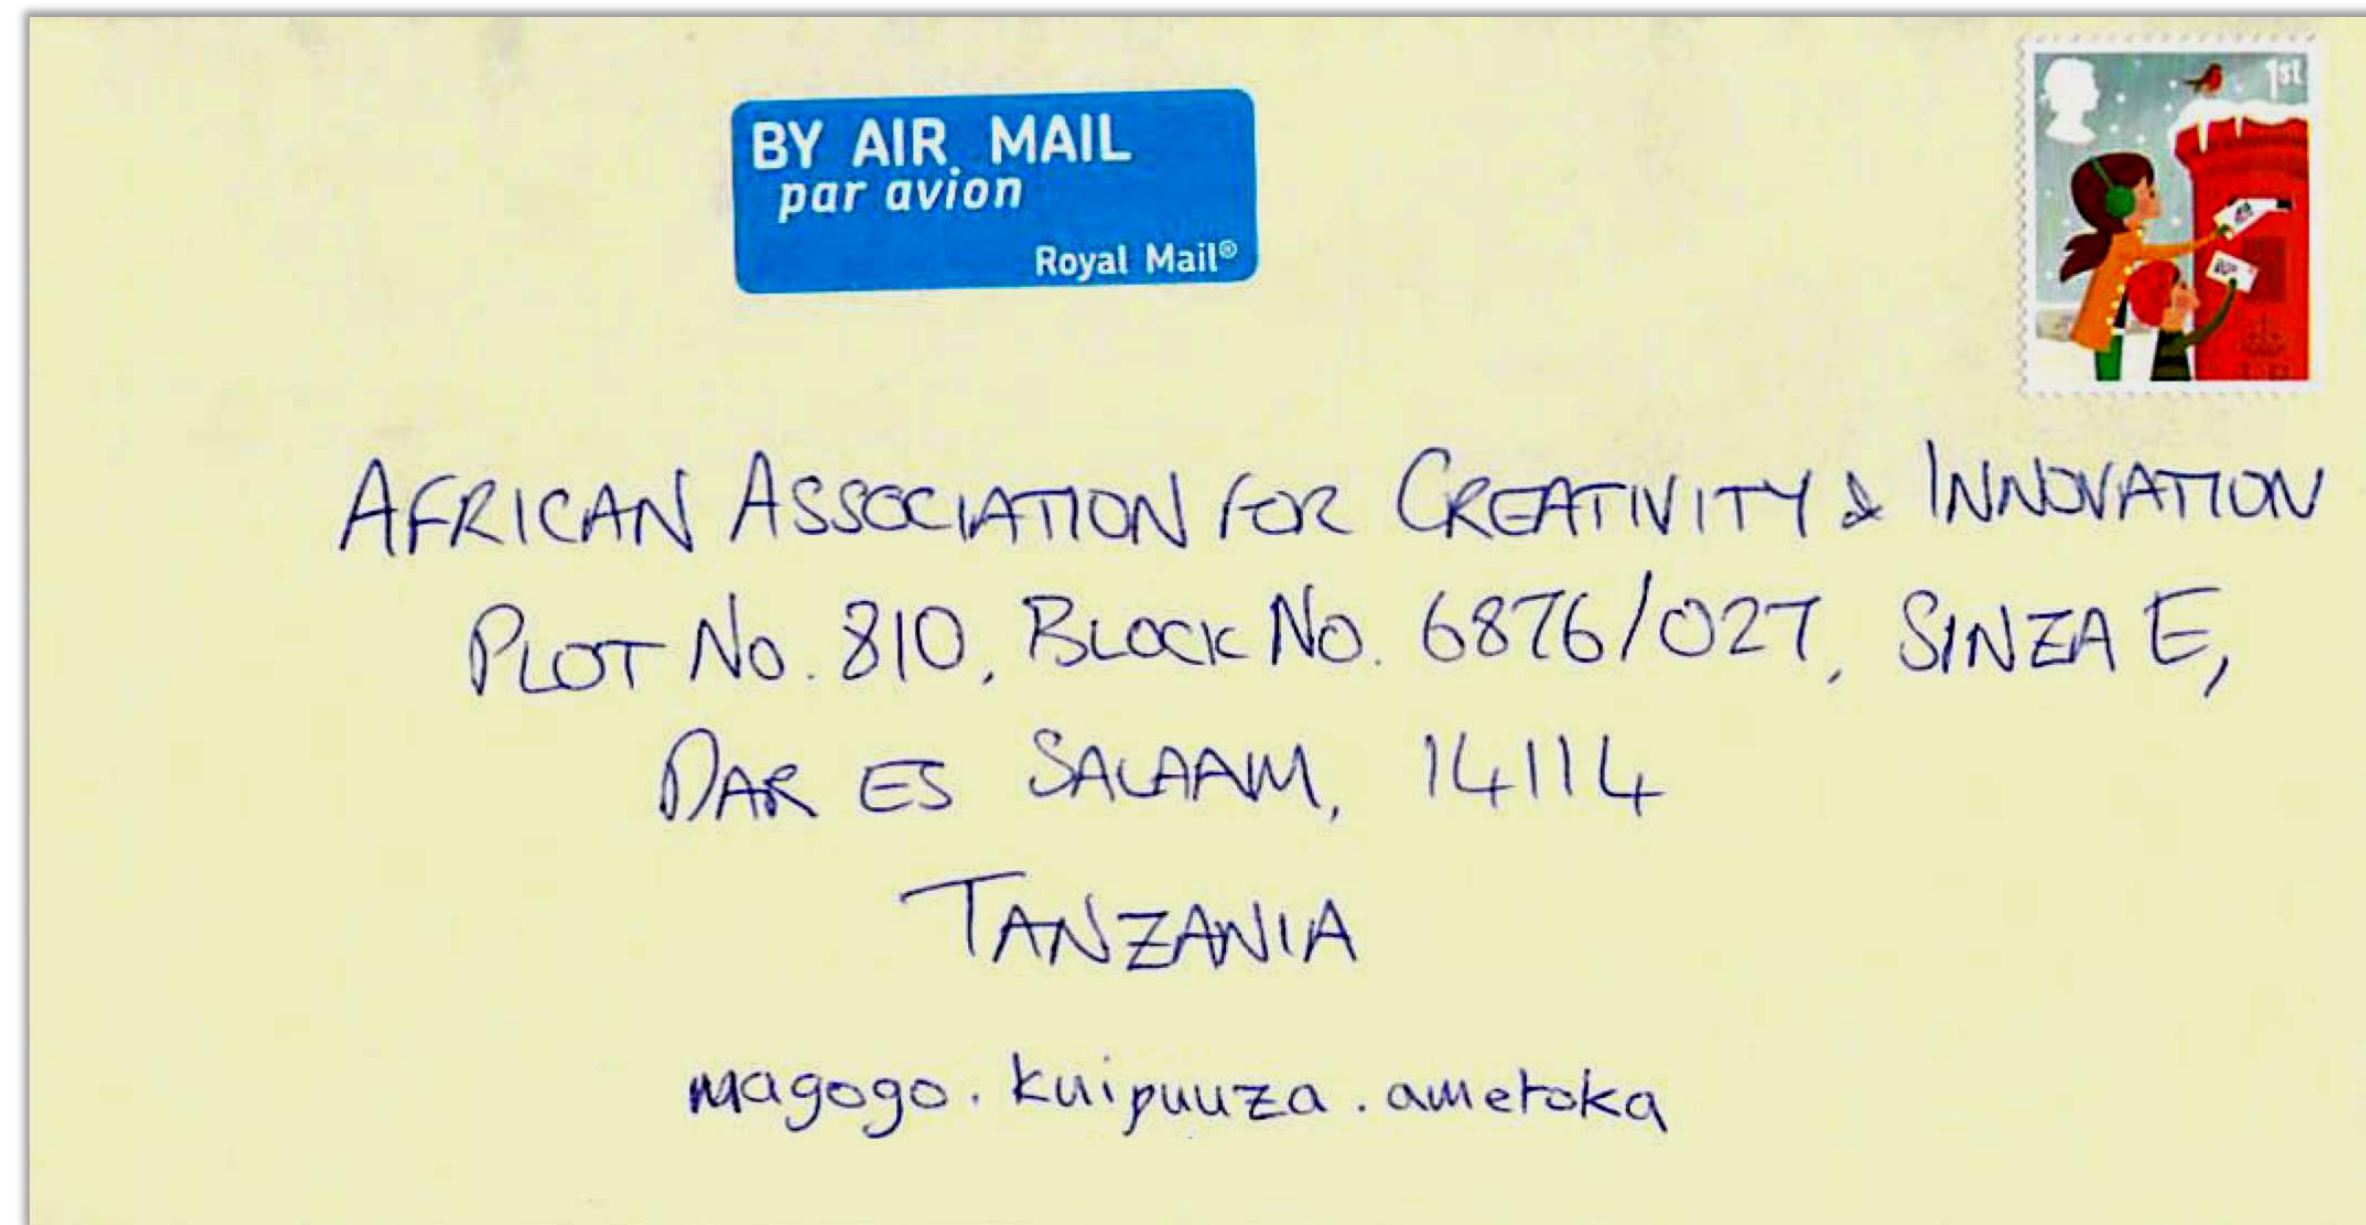 1st
BY AIR MAIL
par avion
Royal Mail®
AFRICAN ASSOCIATION FOR CREATIVITY & INNOVATION
PLOT No. 810, BLOCK No. 6876/027, SINZA E,
DAR ES SALAAM, 14114
TANZANIA
magogo.kuipuuza.ametoka